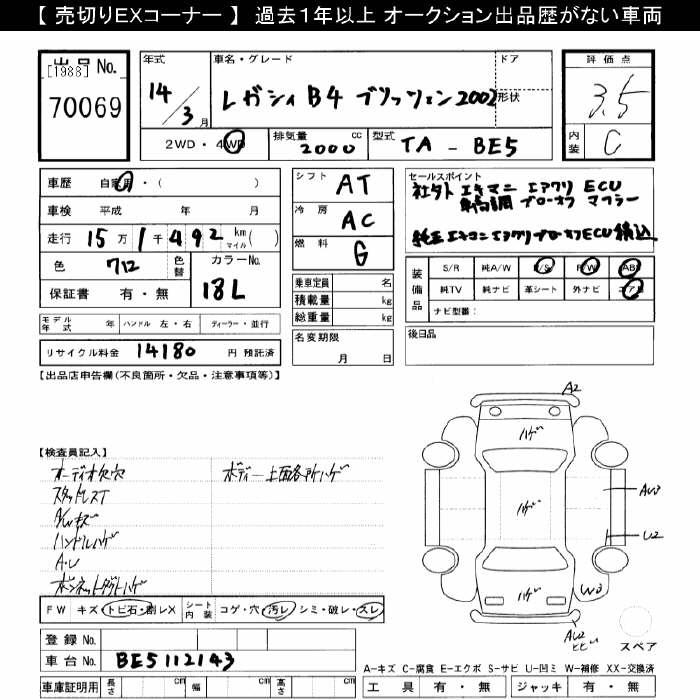 【 売切りEXコーナー 】 過去1年以上 オークション出品歴がない車両
出品 No.
[1988]
70069
年式
14/3 月
車名・グレード
レガシィ B4 ブリッツェン2002
ドア
形状
2WD・4WD
排気量 2000 cc
型式 TA - BE5
評価点
3.5
内装
C
車歴 自家用・( )
車検 平成 年 月
走行 15万1千492 km マイル( )
色 712
色替
カラーNo. 18L
保証書 有・無
シフト AT
冷房 AC
燃料 G
乗車定員 名
積載量 kg
総重量 kg
名変期限
月 日
セールスポイント
社外 エキマニ エアクリ ECU
車高調 ブローオフ マフラー
純正エキマニエアクリブローオフECU積込
装備品
S/R 純A/W P/S P/W ABS
純TV 純ナビ 革シート 外ナビ エアB
ナビ型番:
後日品
モデル年式 年 ハンドル 左・右 ディーラー・並行
リサイクル料金 14180 円 預託済
【出品店申告欄(不良箇所・欠品・注意事項等)】
【検査員記入】
オーディオ欠穴
ボディー上面各所ハゲ
スタッドレスT
A/Wキズ
ハンドルハゲ
A・U
ボンネットダクトハゲ
A2
ハゲ
ハゲ
ハゲ
AW3
U2
W3
AU2
ヒビ
スペア
FW キズ・トビ石・割レX
シート内装 コゲ・穴・汚レ・シミ・破レ・スレ
登録 No.
車台 No. BE5112143
車庫証明用 長さ cm 幅 cm 高さ cm
A-キズ C-腐食 E-エクボ S-サビ U-凹ミ W-補修 XX-交換済
工具 有・無 ジャッキ 有・無